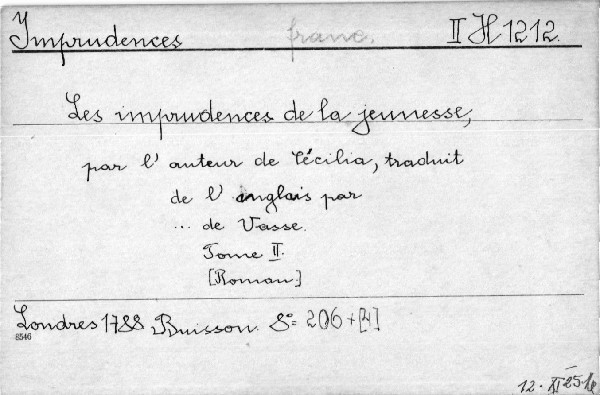 Imprudences franc. II H 1212.
Les imprudences de la jeunesse,
par l'auteur de Cécilia, traduit
de l'anglais par
... de Vasse.
Tome II.
[Roman.]
Londres 1788 Buisson. 8° 206+[2]
8546
12. XI 25.